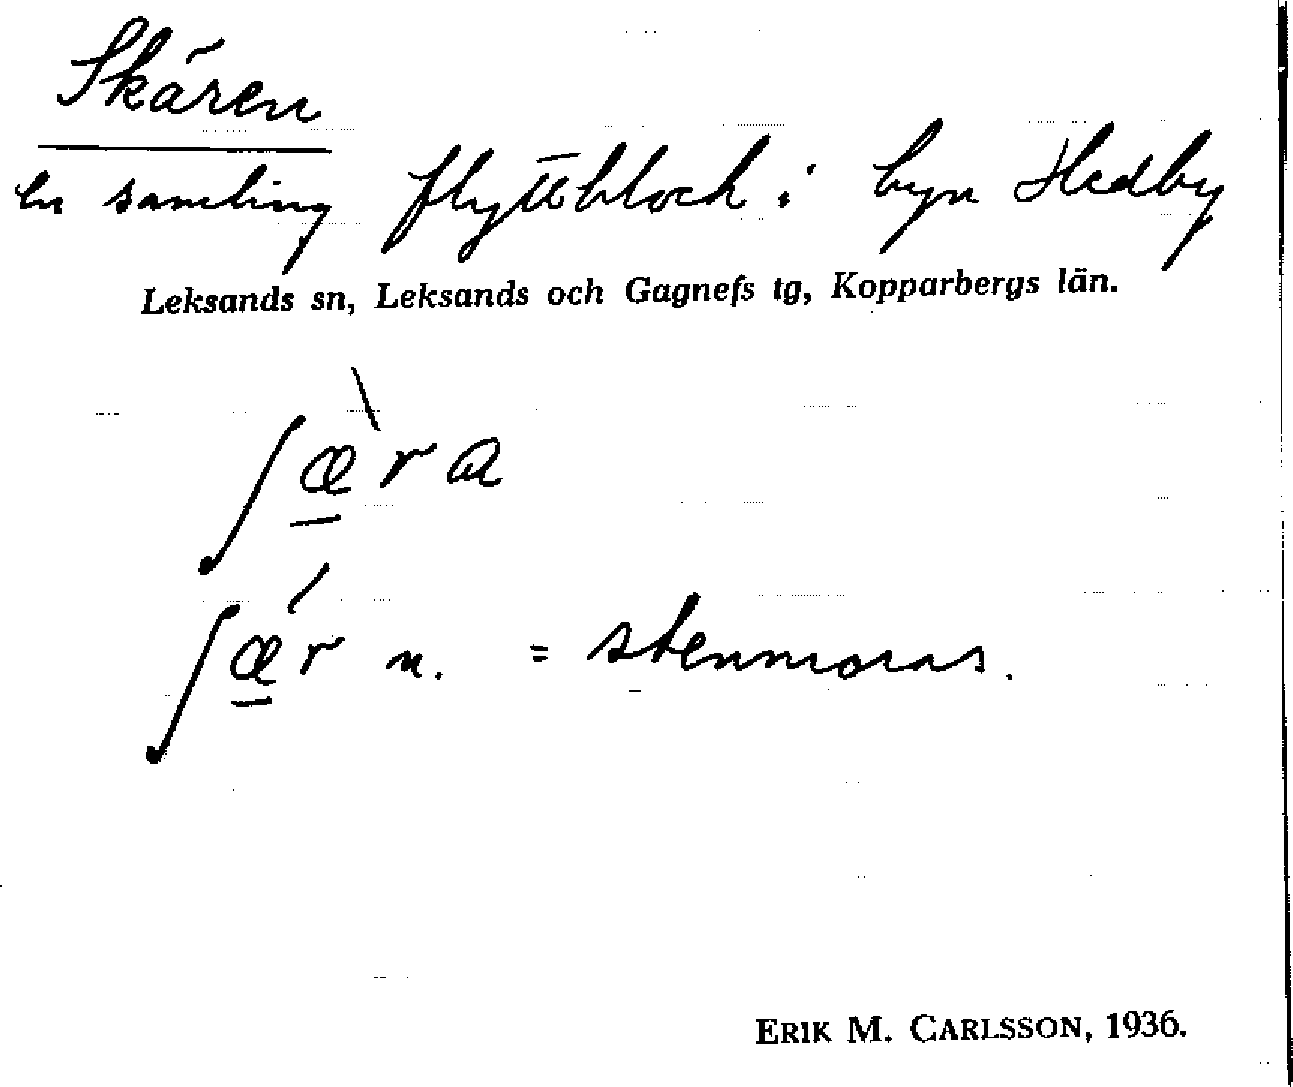 Skären
en samling flyttblock i byn Hedby
Leksands sn, Leksands och Gagnefs tg, Kopparbergs län.
ʃæ̲̀ra
ʃǽ̲r n. = stenmoras.
ERIK M. CARLSSON, 1936.